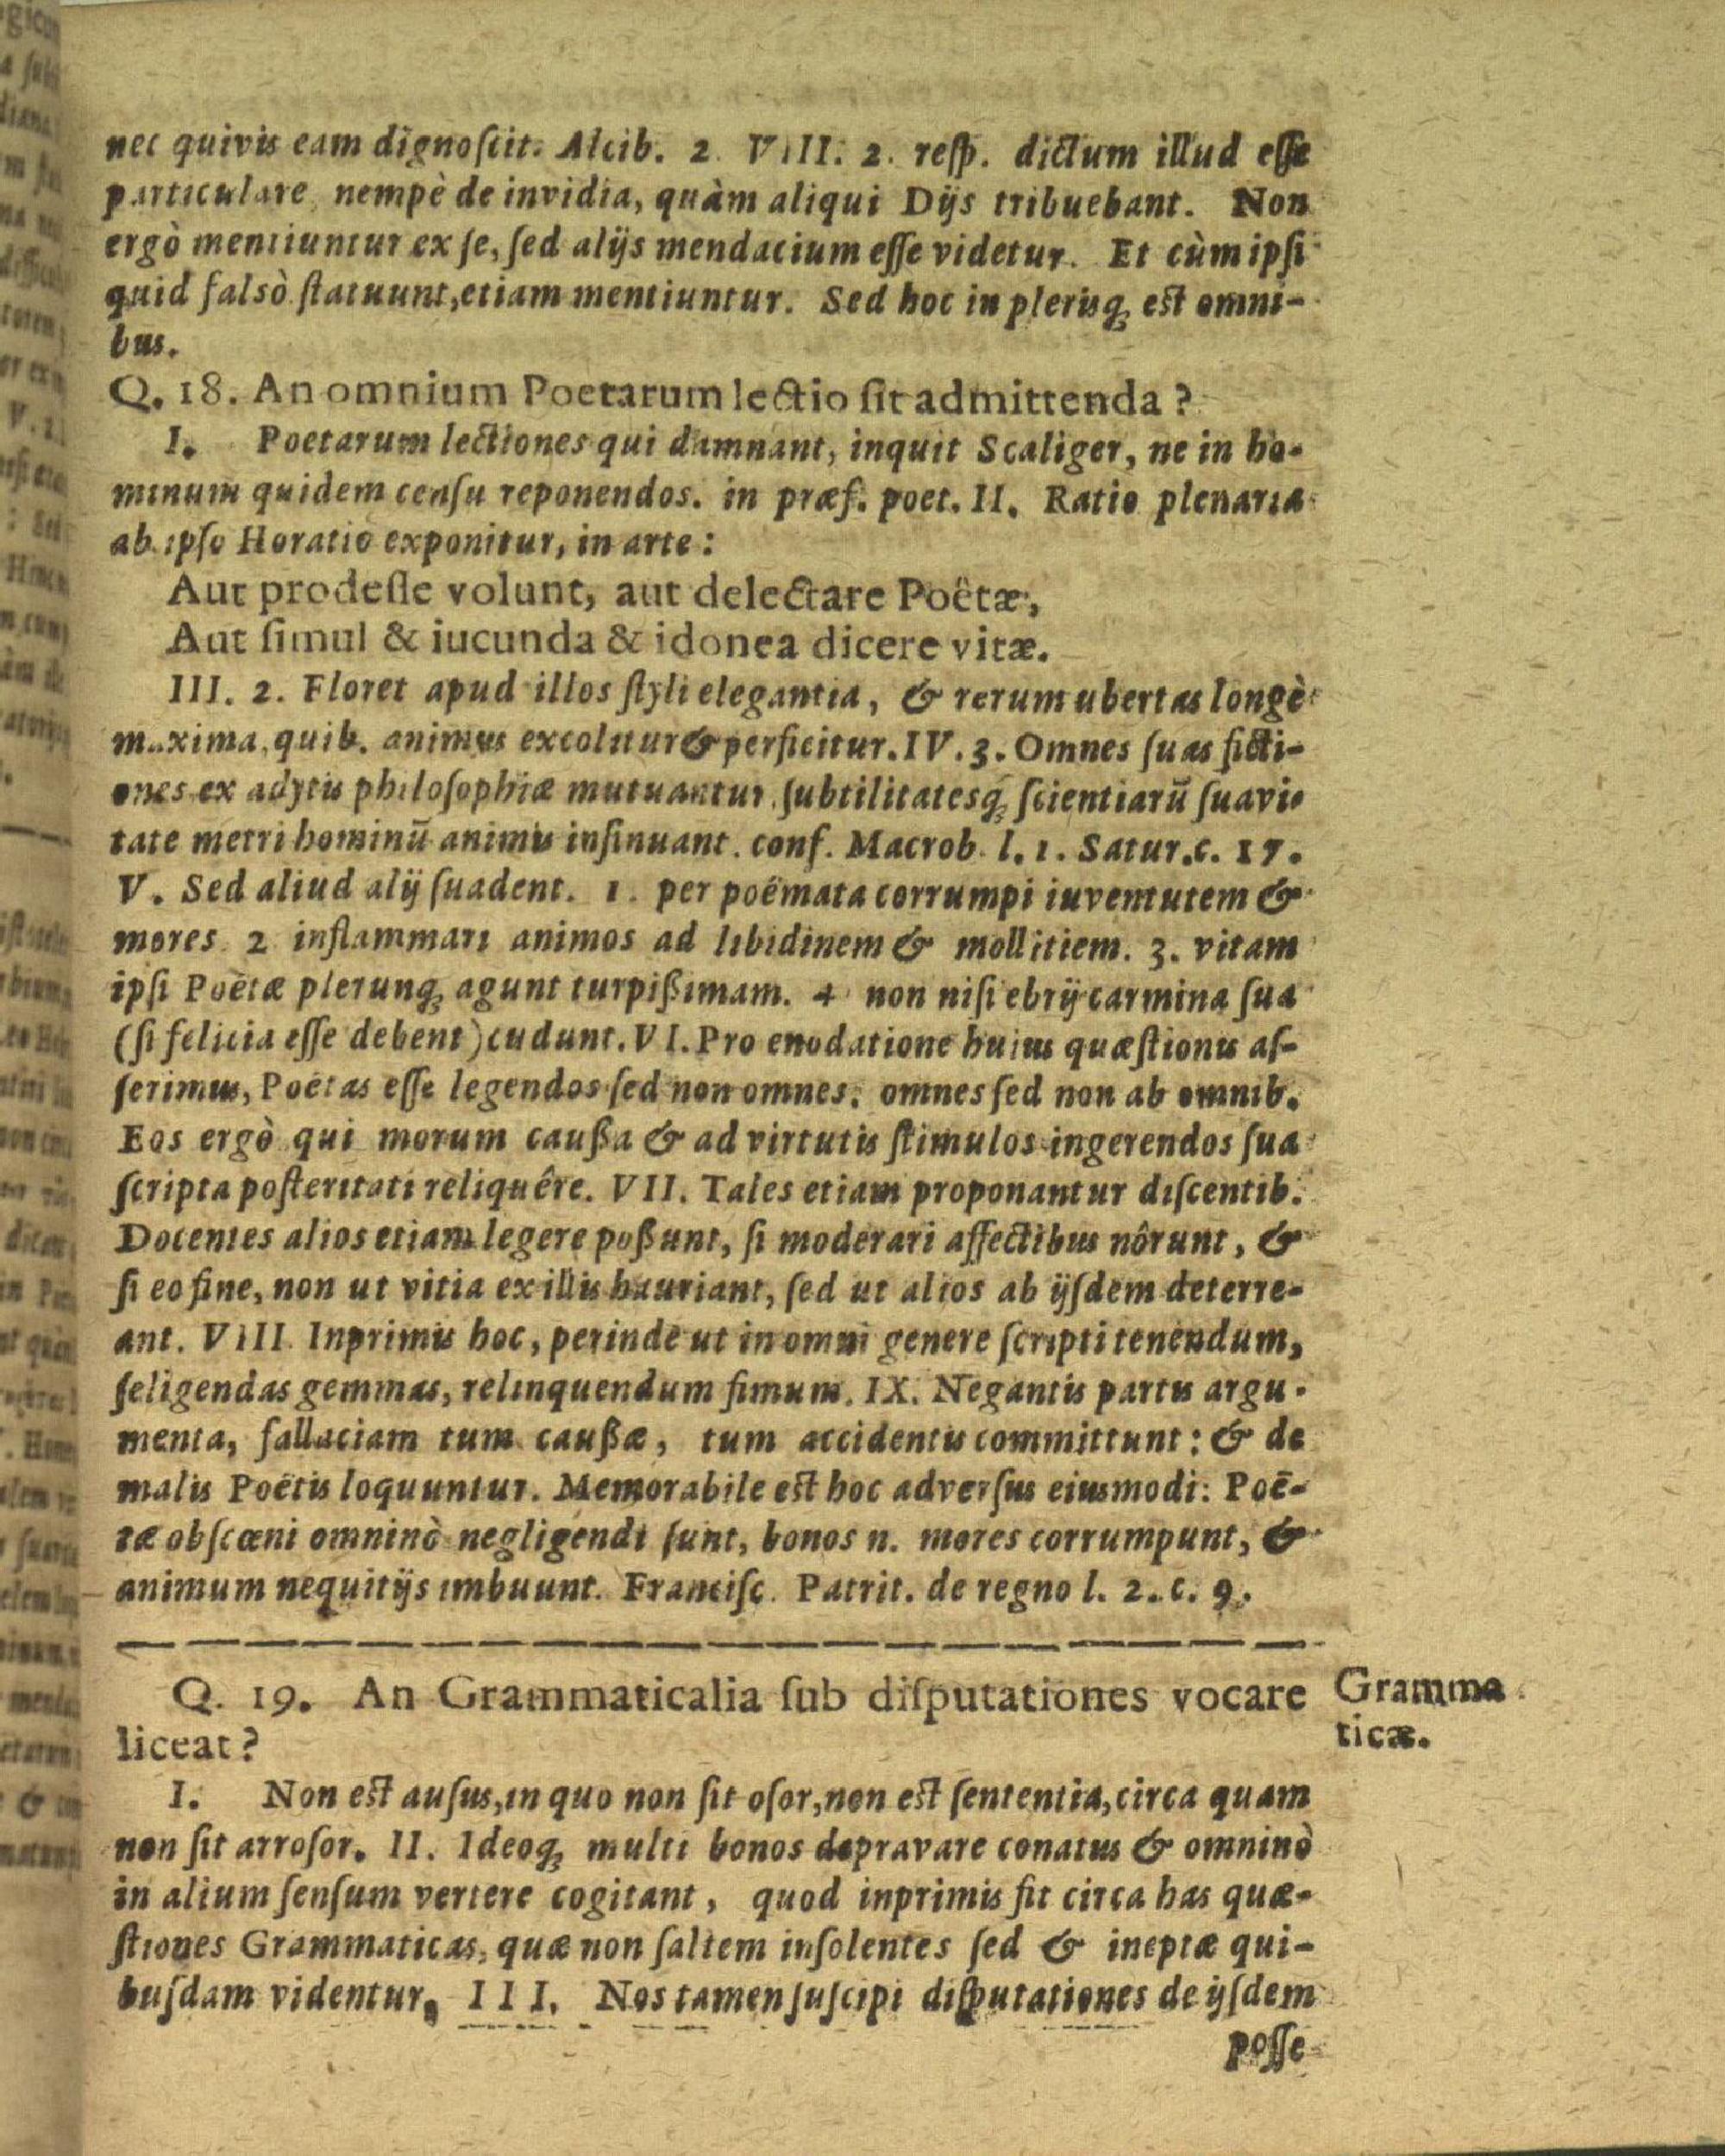 nec quivis eam dignoſcit. Alcib. 2. VIII. 2. reſp. dictum illud eſſe
particulare, nempè de invidia, quàm aliqui Dijs tribuebant. Non
ergò mentiuntur ex ſe, ſed alijs mendacium eſſe videtur. Et cùm ipſi
quid falsò ſtatuunt, etiam mentiuntur. Sed hoc in plerisq; eſt omni-
bus.
Q. 18. An omnium Poetarum lectio ſit admittenda?
I. Poetarum lectiones qui damnant, inquit Scaliger, ne in ho-
minum quidem cenſu reponendos. in præf. poet. II. Ratio plenaria
ab ipſo Horatio exponitur, in arte:
Aut prodeſſe volunt, aut delectare Poëtæ,
Aut ſimul & iucunda & idonea dicere vitæ.
III. 2. Floret apud illos ſtyli elegantia, & rerum ubertas longè
maxima, quib. animus excolitur & perficitur. IV. 3. Omnes ſuas ficti-
ones ex adytis philoſophiæ mutuantur, ſubtilitatesq; ſcientiarū ſuavi-
tate metri hominū animis inſinuant. conf. Macrob. l. 1. Satur. c. 17.
V. Sed aliud alij ſuadent. 1. per poëmata corrumpi iuventutem &
mores. 2 inflammari animos ad libidinem & mollitiem. 3. vitam
ipſi Poëtæ plerunq; agunt turpißimam. 4 non niſi ebrij carmina ſua
(ſi felicia eſſe debent) cudunt. VI. Pro enodatione huius quæſtionis aſ-
ſerimus, Poëtas eſſe legendos ſed non omnes: omnes ſed non ab omnib.
Eos ergò qui morum caußa & ad virtutis ſtimulos ingerendos ſua
ſcripta poſteritati reliquêre. VII. Tales etiam proponantur diſcentib.
Docentes alios etiam legere poßunt, ſi moderari affectibus nôrunt, &
ſi eo fine, non ut vitia ex illis hauriant, ſed ut alios ab ijſdem deterre-
ant. VIII. Inprimis hoc, perinde ut in omni genere ſcripti tenendum,
ſeligendas gemmas, relinquendum fimum. IX. Negantis partis argu-
menta, fallaciam tum caußæ, tum accidentis committunt: & de
malis Poëtis loquuntur. Memorabile eſt hoc adverſus eiusmodi: Poë-
tæ obſcœni omninò negligendi ſunt, bonos n. mores corrumpunt, &
animum nequitijs imbuunt. Franciſc. Patrit. de regno l. 2. c. 9.
Q. 19. An Grammaticalia ſub diſputationes vocare
liceat?
Gramma
ticæ.
I. Non eſt auſus, in quo non ſit oſor, non eſt ſententia, circa quam
non ſit arroſor. II. Ideoq; multi bonos depravare conatus & omninò
in alium ſenſum vertere cogitant, quod inprimis fit circa has quæ-
ſtiones Grammaticas, quæ non ſaltem inſolentes ſed & ineptæ qui-
buſdam videntur. III. Nos tamen ſuſcipi diſputationes de ijſdem
poſſe